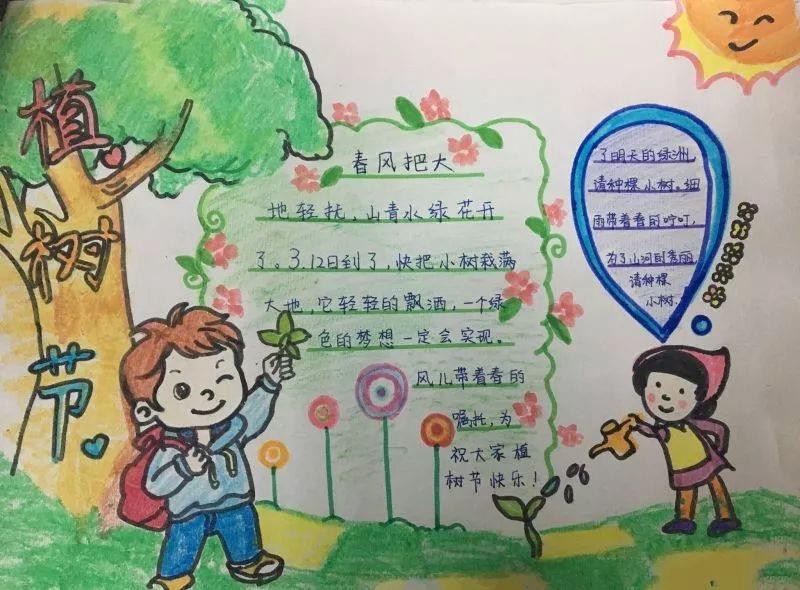 植
树
节
春风把大
地轻抚，山青水绿花开
了。3.12日到了，快把小树栽满
大地，它轻轻的飘洒，一个绿
色的梦想一定会实现。
风儿带着春的
嘱托，为
祝大家植
树节快乐！
了明天的绿洲，
请种棵小树。细
雨带着春的咛叮，
为了山河的秀丽
请种棵
小树.